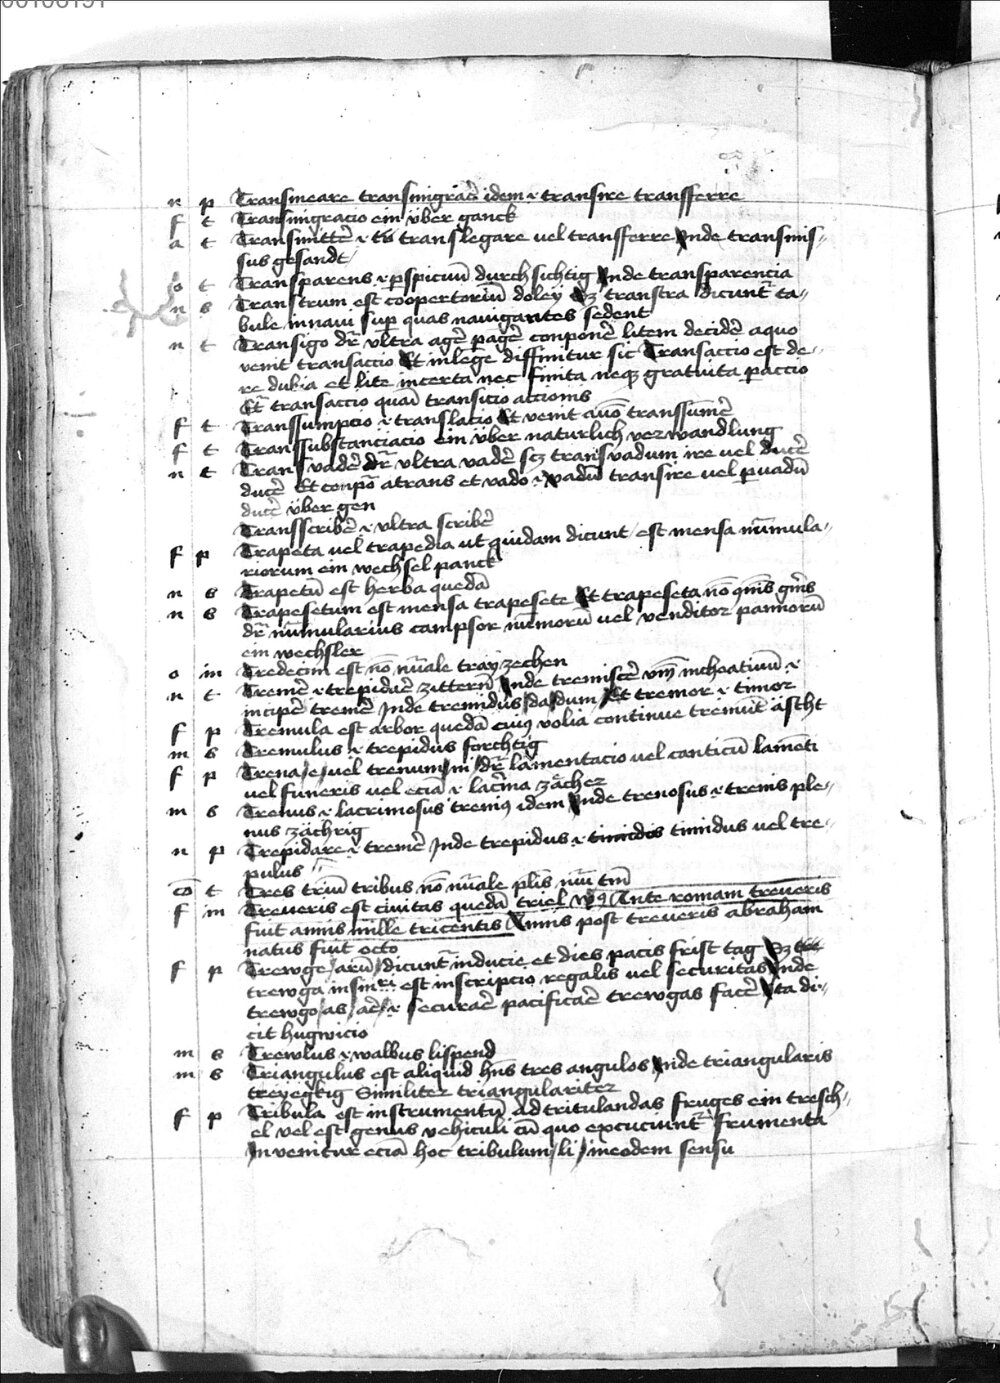 00100191
n p Transmeare transmigrac̄e idem ꝛ transire transferre
f t Transmigracio ein über ganck
a t Transmittē ꝛ translegare uel transferre Inde transmis⸗
sus gesandt
o t Transparens ꝛ ꝑspicuū durchsichtig Inde transparencia
n s Transtrum est coopertoriū doley Sz transtra dicunt̄ ta⸗
bule in naui sup̄ quas nauigantes sedent
n t Transigo dr̄ vltra agē pagē conponē litem decidē a quo
venit transactio Et in lege diffinitur sic Transaccio est de
re dubia et lite incerta nec finita neqꝫ gratuita paccio
Et̄ transaccio quasi transicio accionis
f t Transsumpcio ꝛ translacio Et venit a uō transsumē
f t Transsubstanciacio ein über naturlich verwandlung
n t Transvadē dr̄ vltra vadē scꝫ trans vadum ire vel ducē
ducē Et conpoī a trans et vado ꝛ vadū transire vel ꝑ vadū
ducē über gen
Transscribē ꝛ vltra scribē
f p Trapeta vel trapedia ut quidam dicunt est mensa nūmula⸗
riorum ein wechsel panck
n s Trapetū est herba quedā
n s Trapesetum est mensa trapesete Et trapeseta nō omīs gn̄is
dr̄ nūmularius campsor nūmorū vel venditor pannorū
ein wechsler
o in Tredecim est nō nūale trayzechen
n t Tremē ꝛ trepidac̄e zittern Inde tremiscē vm̄ inchoatiuū ꝛ
incipē tremē Inde tremidus da dum Et tremor ꝛ timor
f p Tremula est arbor quedā cuiꝰ volia continue tremūt ascht
m s Tremulus ꝛ trepidus forchtig
f p Trena e vel trenum ni dr̄ lamentacio vel canticū lamēti
vel funeris vel eciā ꝛ lacīma zächer
m s Trenus ꝛ lacrimosus treniꝰ idem Inde trenosus ꝛ trenis ple⸗
nus zächrig
n p Trepidare ꝛ tremē Inde trepidus ꝛ timidus vel tre⸗
pulus
co t Tres triū tribus nō nūale plīs nūi tm̄
f in Treueris est ciuitas quedā triel Ante romam treueris
fuit annis mille tricentis Annis post treueris abraham
natus fuit octo
f p Trewge arū dicunt̄ inducie et dies pacis frist tag Sꝫ
trewga in sin̄ri est inscripcio regalis vel securitas Inde
trewgo as ac̄e ꝛ securac̄e pacificac̄e trewgas facē Ita di⸗
cit hugwicio
m s Trewlus ꝛ walbus lispend
m s Triangulus est aliquid hn̄s tres angulos Inde triangularis
treyegkig Similiter triangulariter
f p Tribula est instrumentū ad tritulandas fruges ein tresch⸗
el vel est genus vehiculi cū quo excuciunt̄ frumenta
Inuenitur eciā hoc tribulum li in eodem sensu